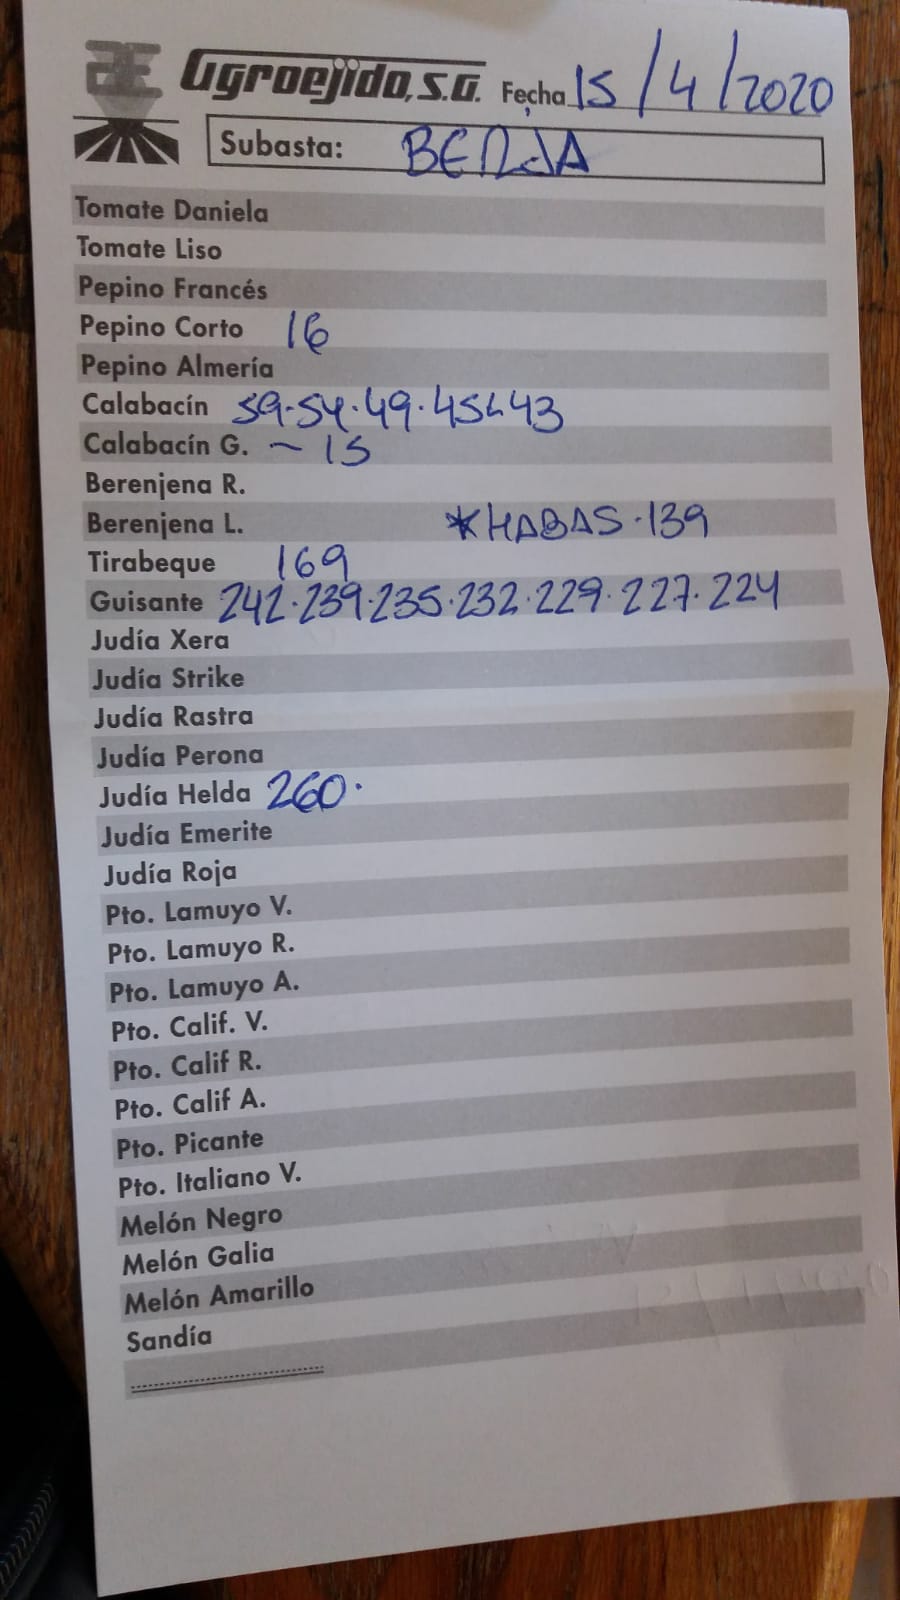 Agroejido, S.A. Fecha 15/4/2020
Subasta: BERJA
Tomate Daniela
Tomate Liso
Pepino Francés
Pepino Corto 16
Pepino Almería
Calabacín 59.54.49.45.43
Calabacín G. ~ 15
Berenjena R.
Berenjena L. *HABAS.139
Tirabeque 169
Guisante 242.239.235.232.229.227.224
Judía Xera
Judía Strike
Judía Rastra
Judía Perona
Judía Helda 260.
Judía Emerite
Judía Roja
Pto. Lamuyo V.
Pto. Lamuyo R.
Pto. Lamuyo A.
Pto. Calif. V.
Pto. Calif R.
Pto. Calif A.
Pto. Picante
Pto. Italiano V.
Melón Negro
Melón Galia
Melón Amarillo
Sandía